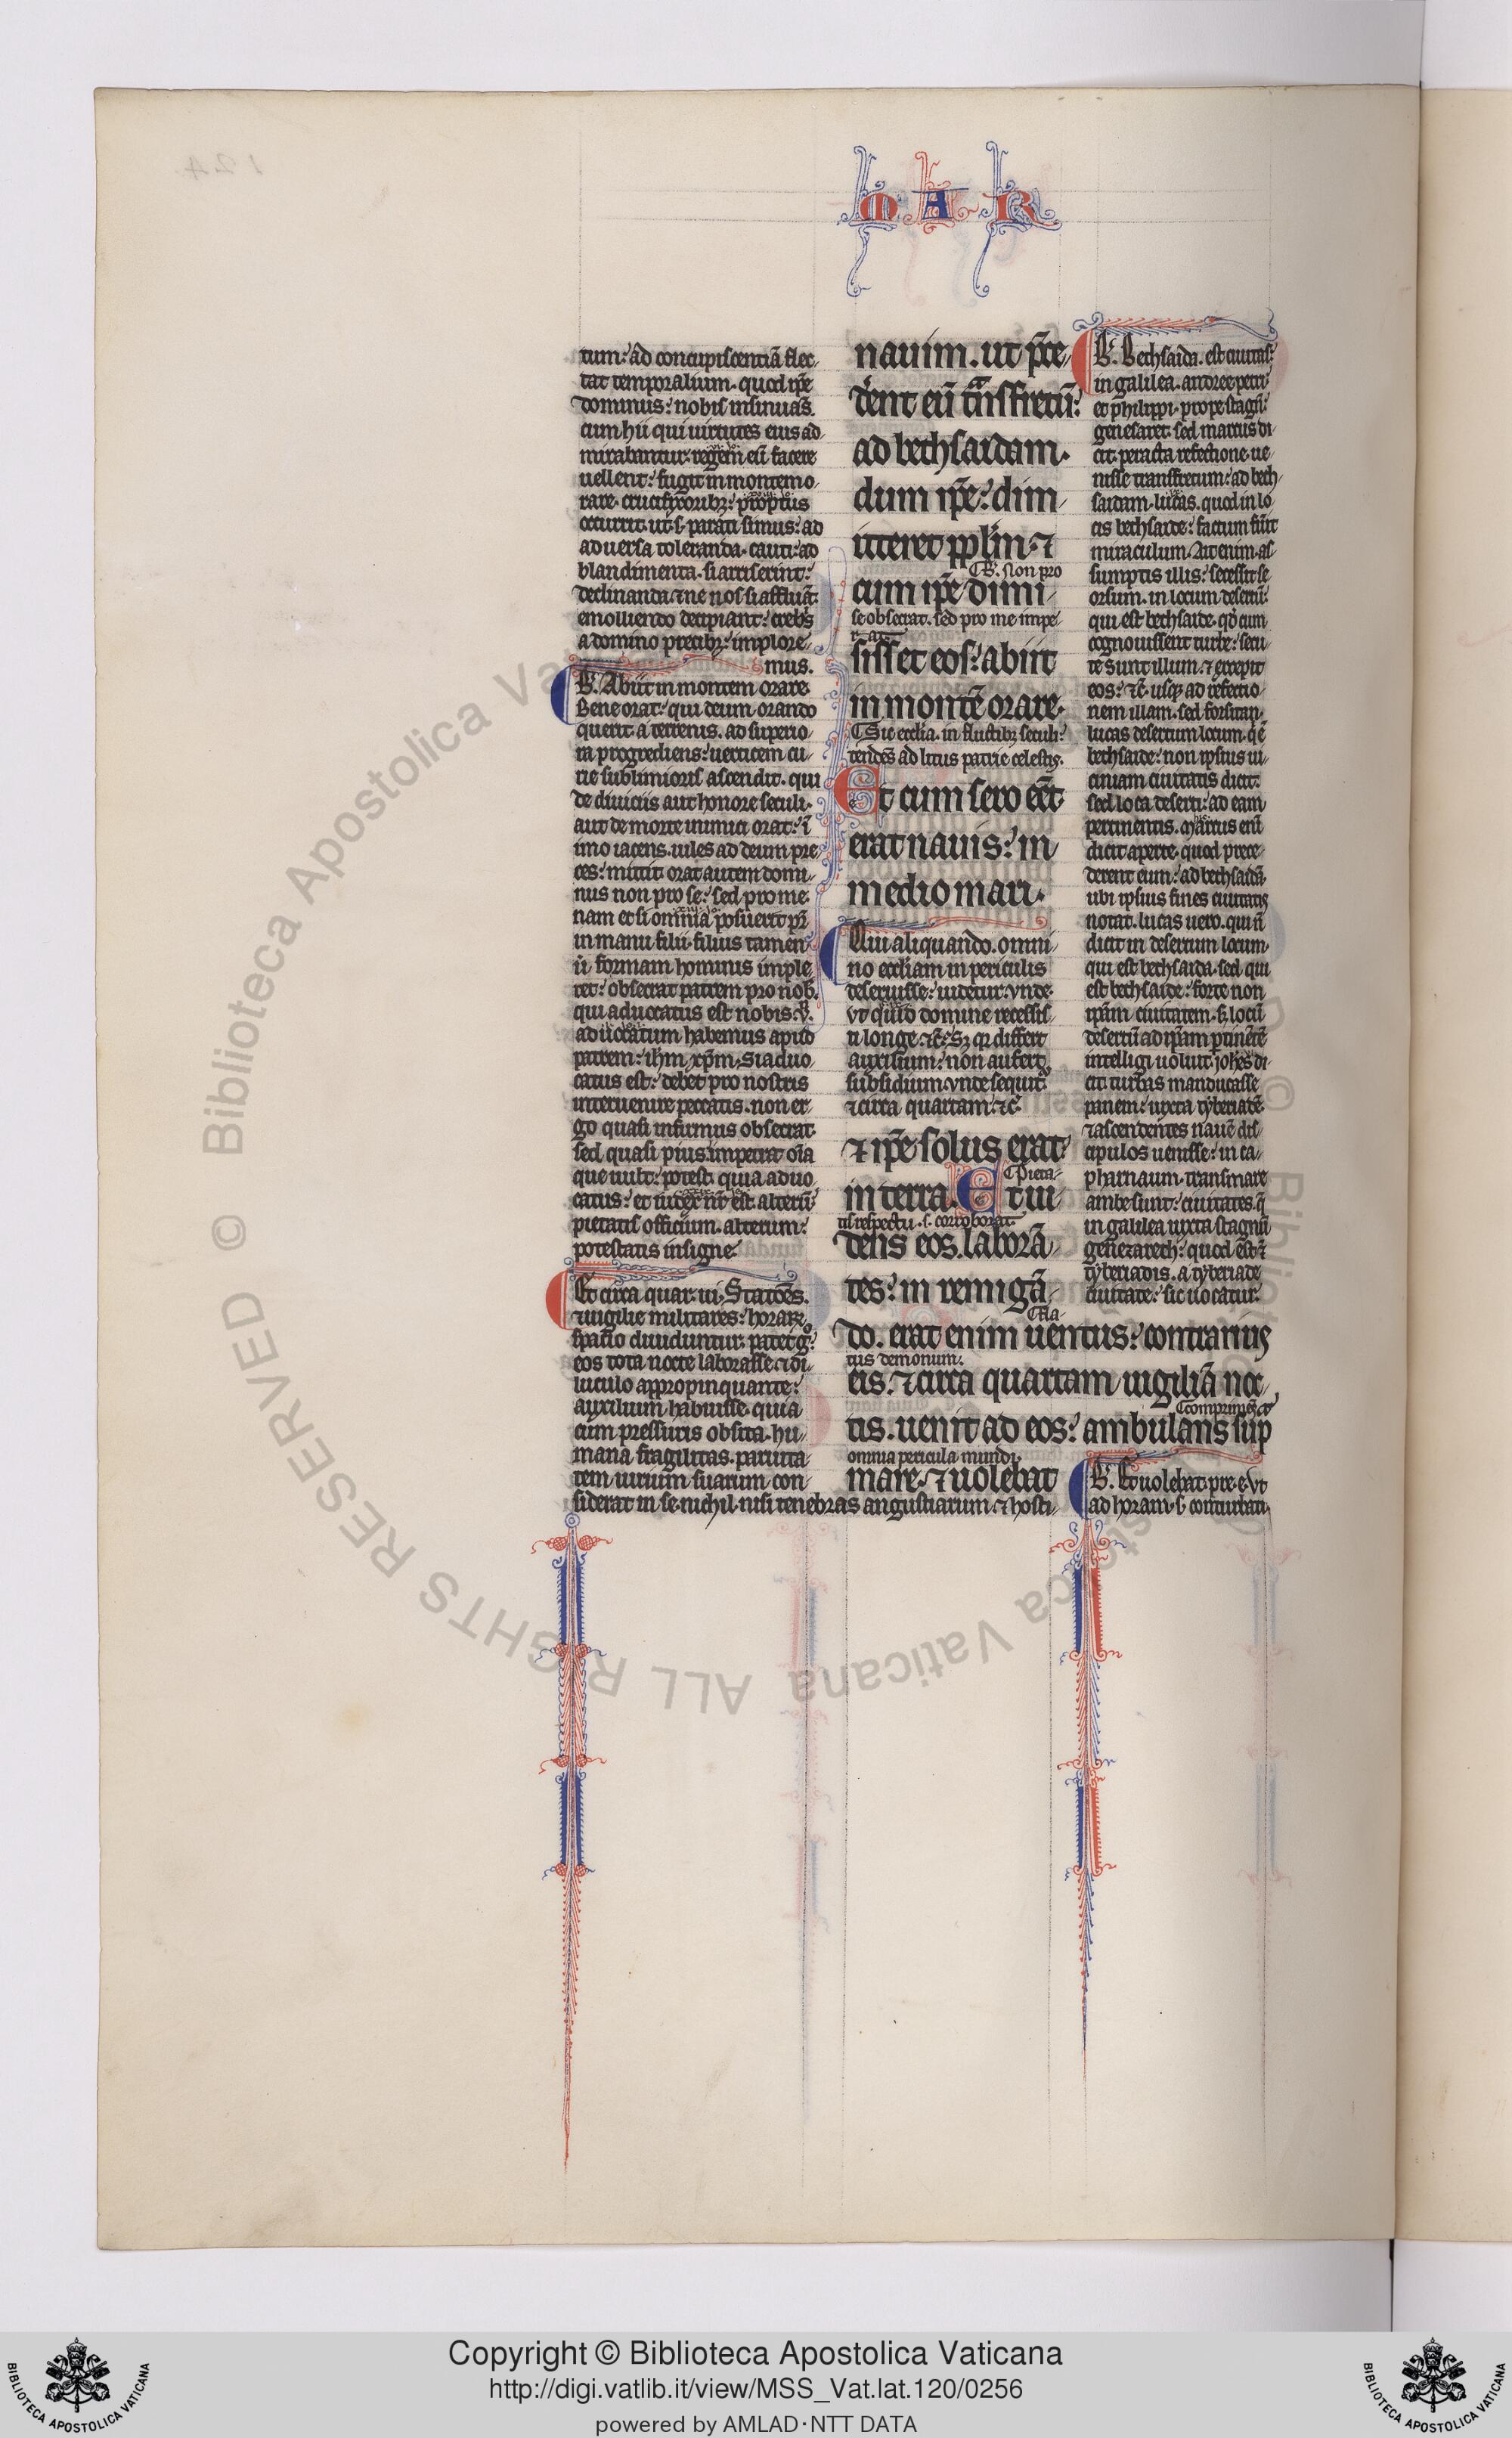 M A R
tum: ad concupiscentiā flec-
tat temporalium. quod ip̄e
dominus: nobis insinuās.
cum hii qui uirtutes eius ad-
mirabantur: regem eū facere
uellent: fugit in montem o-
rare. crucifixoribȝ: proptius
occurrit. ut .s. parati simus: ad
aduersa toleranda. cauti: ad
blandimenta. si arriserint:
declinanda. ⁊ ne nos si affluāt:
emolliendo decipiant: crebrͥs
a domino precibȝ: implore-
mus.
B. Abiit in montem orare.
Bene orat: qui deum orando
querit. a terrenis. ad superio-
ra progrediens: uerticem cu-
rie sublimioris ascendit. qui
de diuiciis aut honore seculi.
aut de morte inimici orat: ī
imo iacens. uiles ad deum pre-
ces: mittit. orat autem domi-
nus non pro se: sed pro me.
nam et si omnia posuerit pr̄
in manu filii. filius tamen
ū formam hominis imple-
ret: obsecrat patrem pro nob.
qui aduocatus est nobis.
aduocatum habemus apud
patrem: ihm̄ xp̄m. si aduo-
catus est: debet pro nostris
interuenire peccatis. non er-
go quasi infirmus obsecrat.
sed quasi pius. impetrat oīa
que uult: potest. quia aduo-
catus: et iudex nr̄ est. alterū:
pietatis officium. alterum:
potestatis insigne.
Et circa quar. ui. Statōes.
⁊ uigilie militares: horarꝝ
spatio diuiduntur. patet gͦ:
eos tota nocte laborasse. ⁊ di-
luculo appropinquante:
auxilium habuisse. quia
cum pressuris obsita. hu-
mana fragilitas. paruita-
tem uirium suarum con-
siderat in se. nichil. nisi tenebras angustiarum. ⁊ hosti-
nauim. ut p̄ce-
derent eū transfretū:
ad bethsaidam.
dum ip̄e: dim-
itteret pplm̄. ⁊
B. Non pro
cum ip̄e dimi-
se obsecrat. sed pro me impe-
rat
sisset eos: abiit
in montē orare.
Sic ecclia. in fluctibȝ seculi:
tendens ad litus patrie celestis.
Et cum sero eēt.
erat nauis: in
medio mari.
Qui aliquando. omni-
no eccliam in periculis
deseruisse: uidetur. vnde.
vt quid domine recessis-
ti longe. ⁊c̄. Sȝ differt
auxilium: non aufert
subsidium. vnde sequit̄
⁊ circa quartam. ⁊c̄.
⁊ ip̄e solus erat
Pieta-
in terra. Et ui-
tis respectu .s. corroborat.
dens eos. laborā-
tes: in remigā-
Fla-
do. erat enim uentus: contrarius
tus demonum.
eis. ⁊ circa quartam uigiliā noc-
comprimens
tis. uenit ad eos: ambulans sup
omnia pericula mundi.
mare. ⁊ uolebat
B. Bethsaida. est ciuitas:
in galilea. andree petri
et philippi. prope stagn̄.
genesaret. sed marcus di-
cit. peracta refectione. ue-
nisse transfretum: ad beth-
saidam. lucas. quod in lo-
cis bethsaide: factum fūit
miraculum. Ait enim. as-
sumptis illis: secessit se-
orsum. in locum desertū:
qui est bethsaide. qd̄ cum
cognouissent turbe: secu-
te sunt illum. ⁊ excepit
eos: ⁊c̄. usqȝ ad refectio-
nem illam. sed forsitan.
lucas desertum locum. q̄ ē
bethsaide: non ipsius ui-
ciniam ciuitatis dicit:
sed loca deserti: ad eam
pertinentis. Marcus enī
dicit aperte. quod prece-
derent eum: ad bethsaidā.
ubi ipsius fines ciuitatis
notat. lucas uero. qui n̄
dicit in desertum locum.
qui est bethsaida. sed qui
est bethsaide: forte non
ip̄am ciuitatem. sȝ locū
desertū ad ip̄am ptinētē
intelligi uoluit. johes di-
cit turbas manducasse
panem: iuxta tyberiadē.
⁊ ascendentes nauē dis-
cipulos uenisse: in ca-
pharnaum. transmare
ambe sunt: ciuitates. q̄
in galilea iuxta stagnū
genezareth: quod est ⁊
tyberiadis. a tyberiade
ciuitate: sic uocatur.
B. Et uolebat. pre. e. Vt
ad horam. s. conturbati.
Copyright © Biblioteca Apostolica Vaticana
http://digi.vatlib.it/view/MSS_Vat.lat.120/0256
powered by AMLAD·NTT DATA
BIBLIOTECA APOSTOLICA VATICANA
BIBLIOTECA APOSTOLICA VATICANA
© Biblioteca Apostolica Vaticana ALL RIGHTS RESERVED